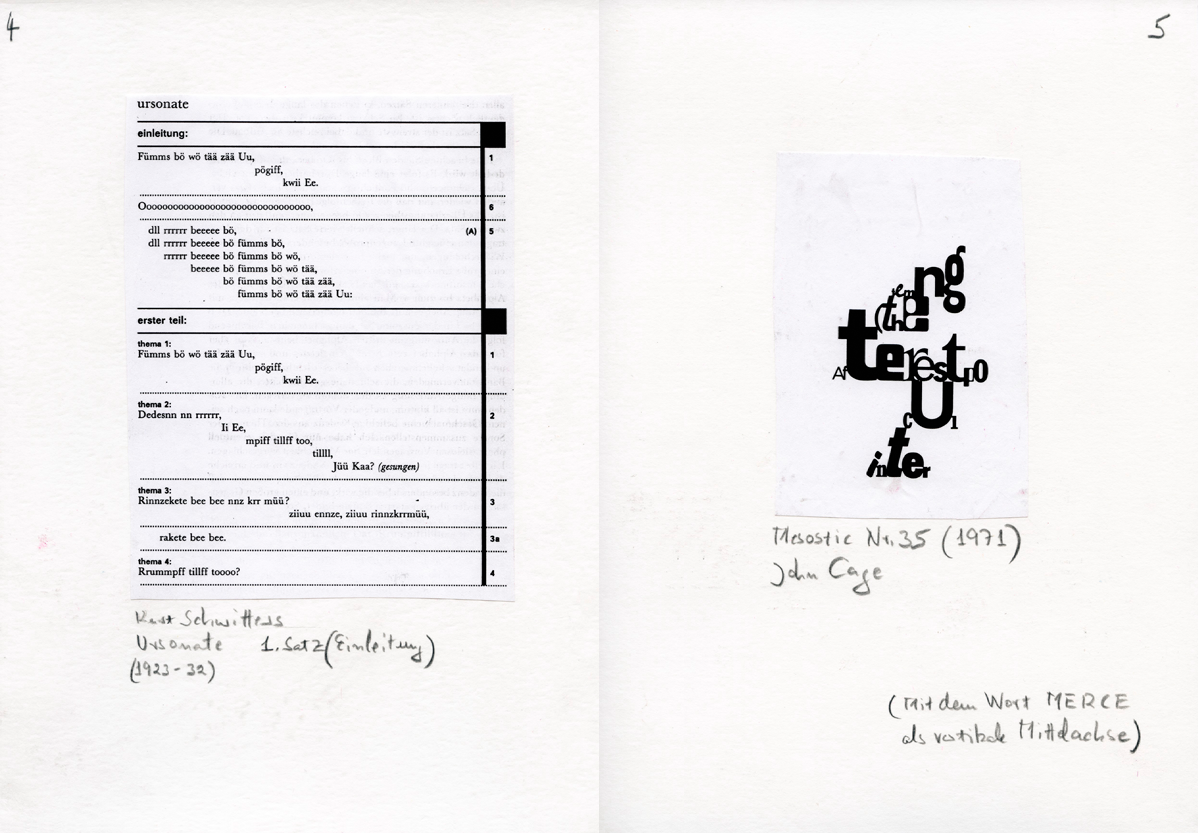 4
ursonate
einleitung:
Fümms bö wö tää zää Uu, 1
pögiff,
kwii Ee.
Oooooooooooooooooooooooooooooooo, 6
dll rrrrrr beeeee bö, (A) 5
dll rrrrrr beeeee bö fümms bö,
rrrrrr beeeee bö fümms bö wö,
beeeee bö fümms bö wö tää,
bö fümms bö wö tää zää,
fümms bö wö tää zää Uu:
erster teil:
thema 1:
Fümms bö wö tää zää Uu, 1
pögiff,
kwii Ee.
thema 2:
Dedesnn nn rrrrrr, 2
Ii Ee,
mpiff tillff too,
tillll,
Jüü Kaa? (gesungen)
thema 3:
Rinnzekete bee bee nnz krr müü? 3
ziiuu ennze, ziiuu rinnzkrrmüü,
rakete bee bee. 3a
thema 4:
Rrummpff tillff toooo? 4
Kurt Schwitters
Ursonate 1. Satz (Einleitung)
(1923-32)
5
Mesostic Nr. 35 (1971)
John Cage
(Mit dem Wort MERCE
als vertikale Mittelachse)